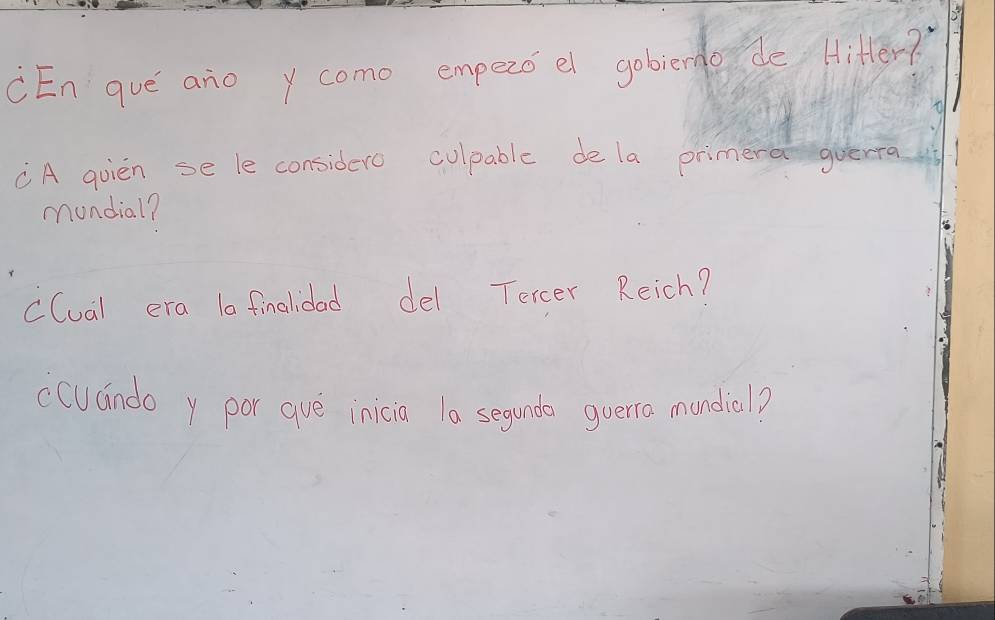 ¿En qué año y como empezó el gobierno de Hitler?
¿A quién se le considero culpable de la primera guerra
mundial?
¿Cuál era la finalidad del Tercer Reich?
¿Cuándo y por qué inicia la segunda guerra mundial?